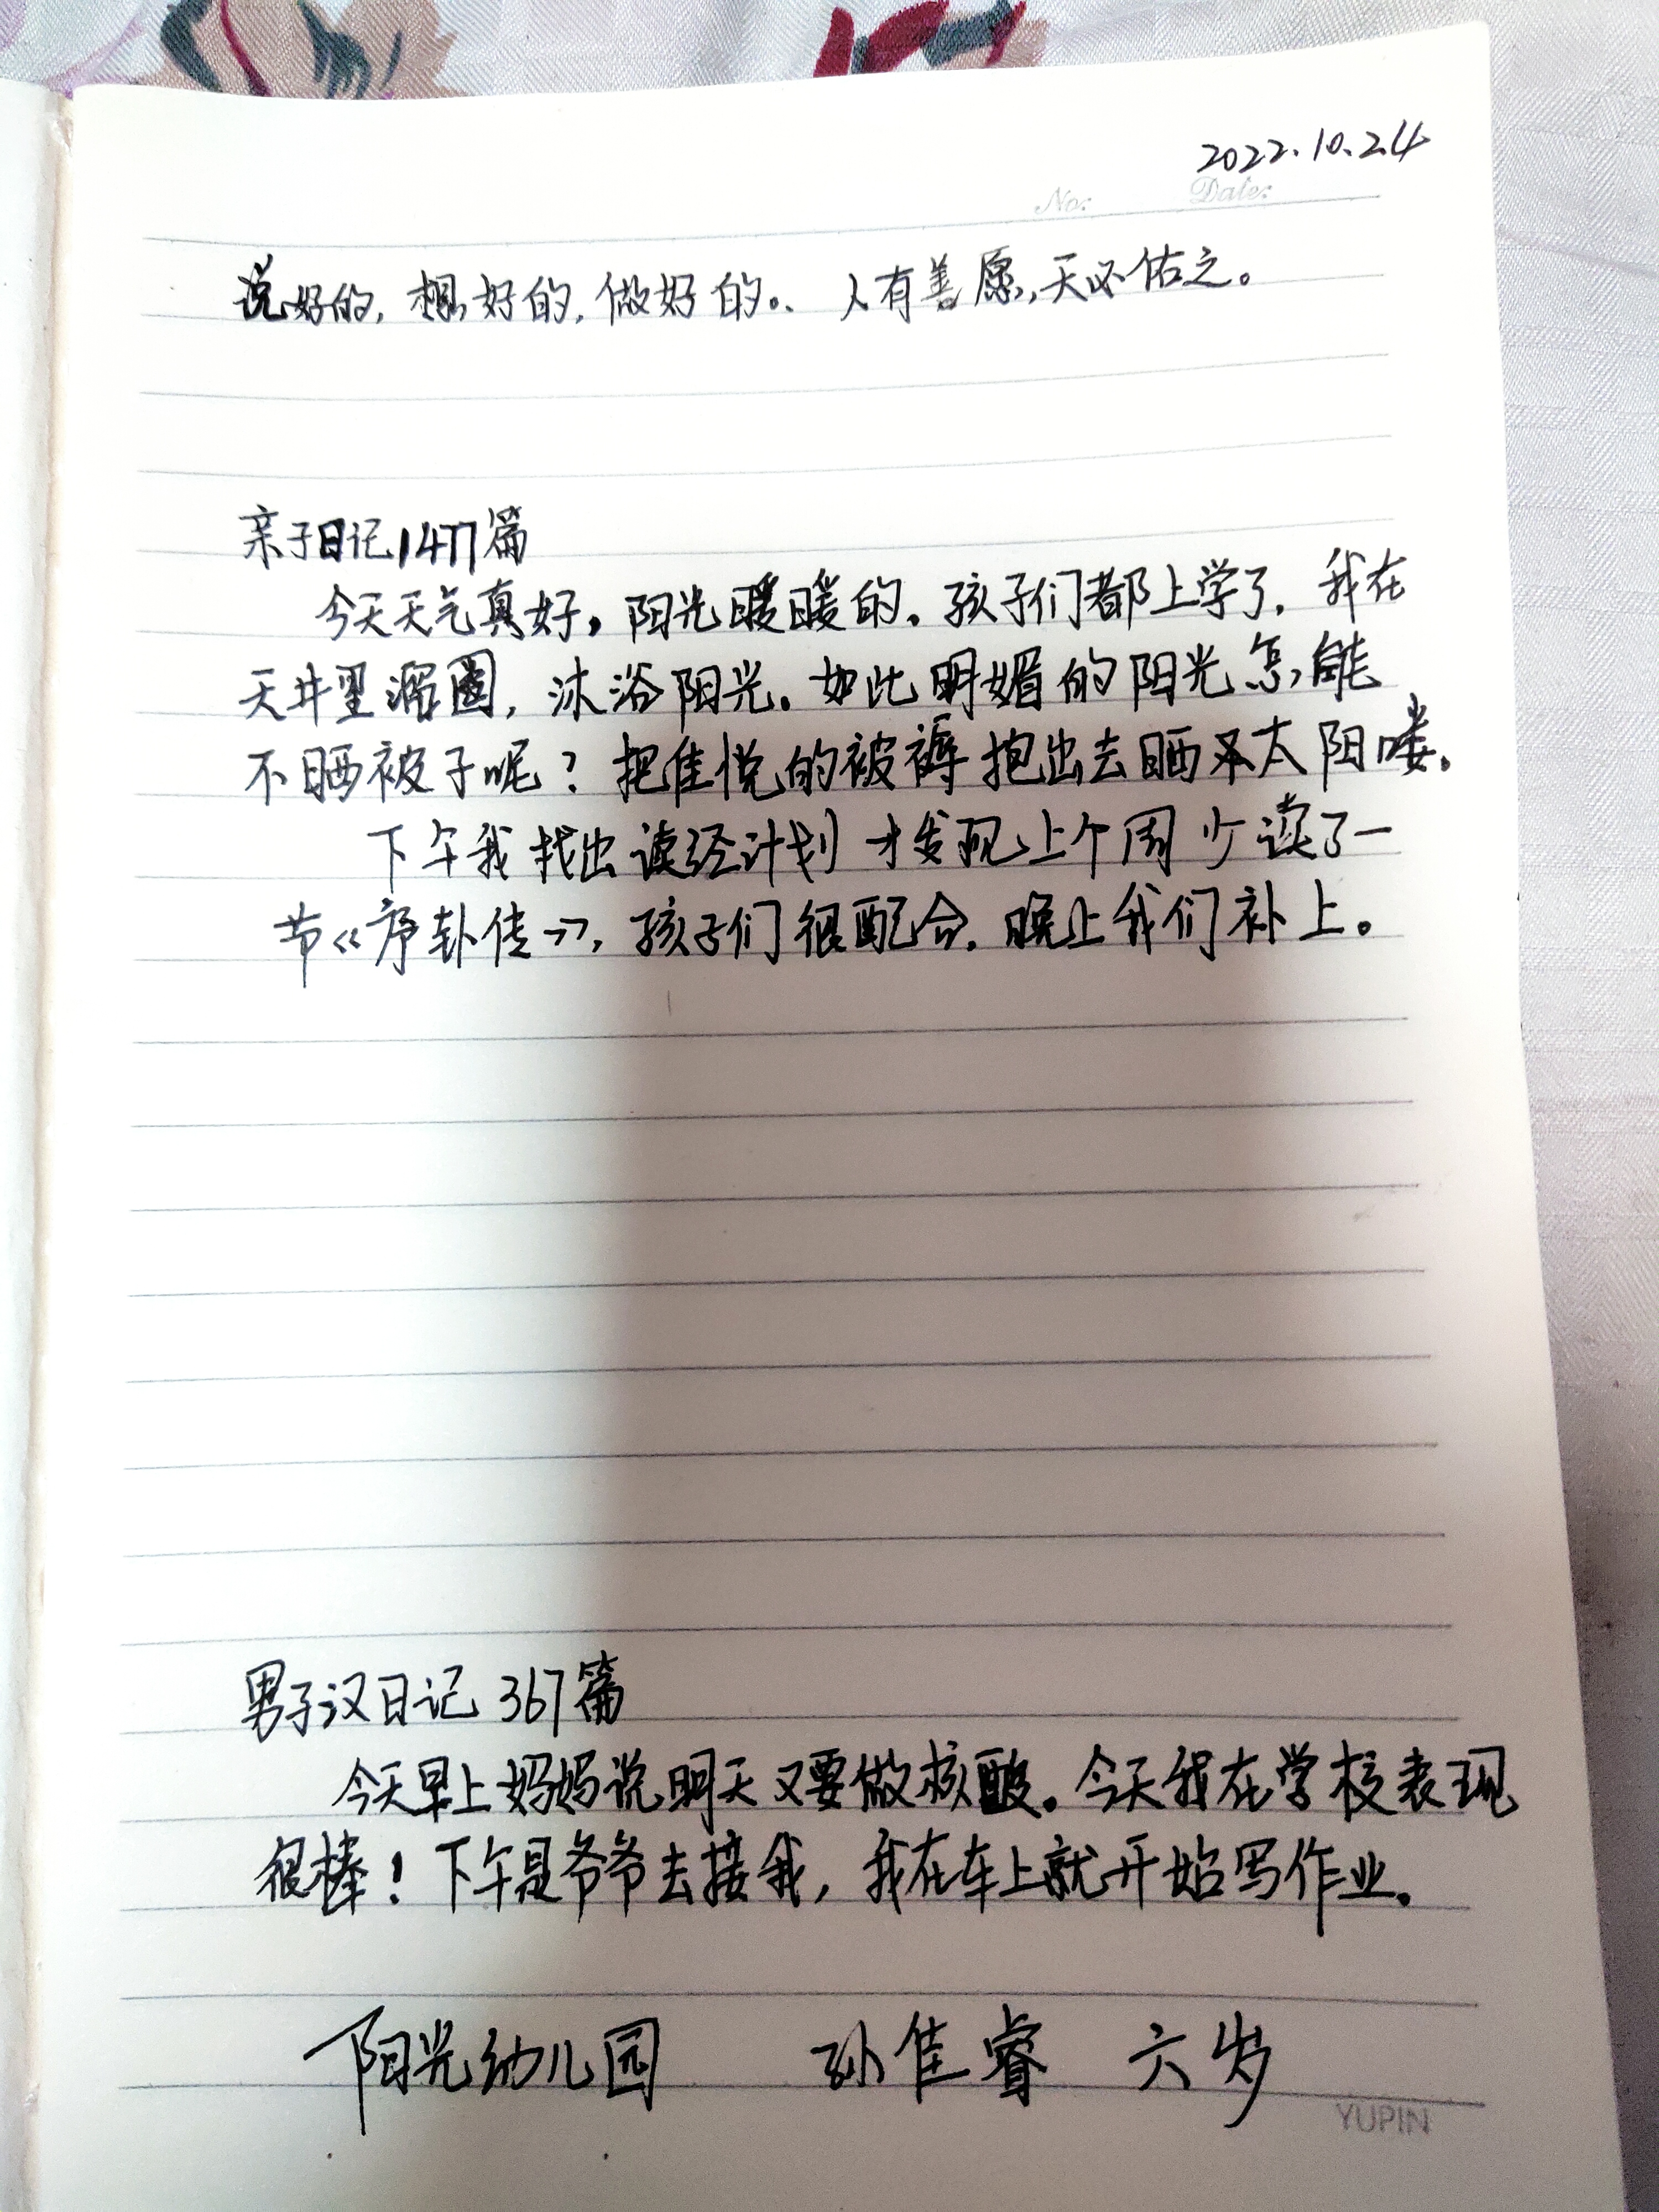 2022.10.24
No: Date:
说好的，想好的，做好的。、人有善愿，天必佑之。
亲子日记1477篇
今天天气真好，阳光暖暖的。孩子们都上学了，我在
天井里溜圈，沐浴阳光。如此明媚的阳光怎能
不晒被子呢？把佳悦的被褥抱出去晒太阳喽。
下午我找出读经计划才发现上个周少读了一
节《序卦传》，孩子们很配合，晚上我们补上。
男子汉日记 367篇
今天早上妈妈说明天又要做核酸。今天我在学校表现
很棒！下午是爷爷去接我，我在车上就开始写作业。
阳光幼儿园 孙佳睿 六岁
YUPIN